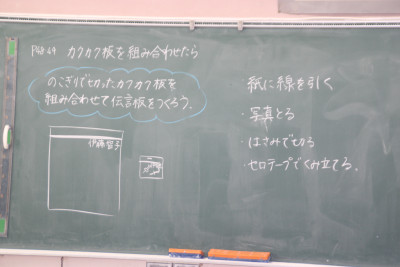 P48.49 カクカク板を組み合わせたら
のこぎりで切ったカクカク板を
組み合わせて伝言板をつくろう。
伊藤智子
紙に線を引く
・写真とる
・はさみで切る
・セロテープでくみ立てる。